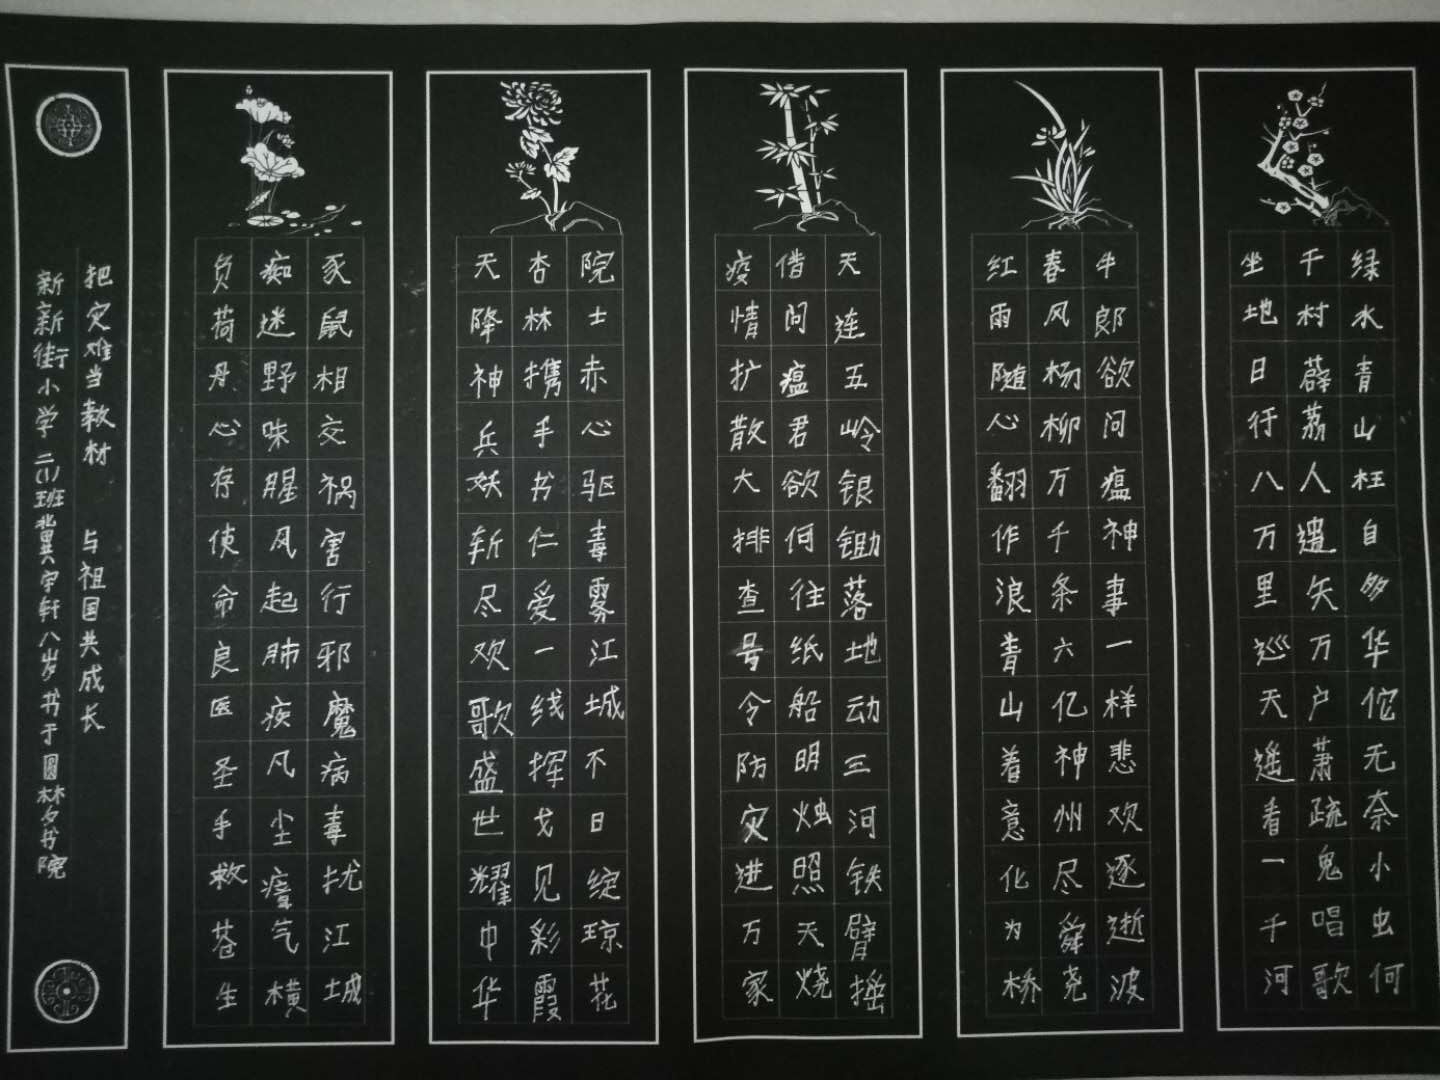 绿水青山枉自多华佗无奈小虫何
千村薜荔人遗矢万户萧疏鬼唱歌
坐地日行八万里巡天遥看一千河
牛郎欲问瘟神事一样悲欢逐逝波
春风杨柳万千条六亿神州尽舜尧
红雨随心翻作浪青山着意化为桥
天连五岭银锄落地动三河铁臂摇
借问瘟君欲何往纸船明烛照天烧
疫情扩散大排查号令防灾进万家
院士赤心驱毒雾江城不日绽琼花
杏林携手书仁爱一线挥戈见彩霞
天降神兵妖斩尽欢歌盛世耀中华
豕鼠相交祸害行邪魔病毒扰江城
痴迷野味腥风起肺疾凡尘瘴气横
负荷丹心存使命良医圣手救苍生
把灾难当教材 与祖国共成长
新新街小学二(1)班冀宇轩八岁书于圆林夕书院